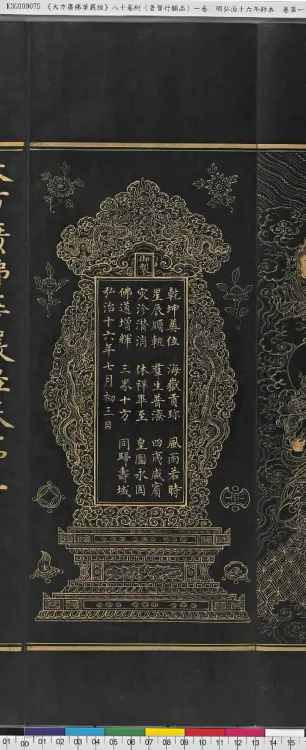 K3C000075 《大方廣佛華嚴經》八十卷附〈普賢行願品〉一卷 明弘治十六年鈔本 卷第一
御製
乾坤奠位 海嶽貢珍 風雨若時
星辰順軌 羣生普濟 四序咸宥
灾沴潛消 休祥畢至 皇圖永固
佛道增輝 三界十方 同歸壽域
弘治十六年七月初三日
大方廣佛華嚴經卷第一
01 00 01 02 03 04 05 06 07 08 09 10 11 12 13 14 15